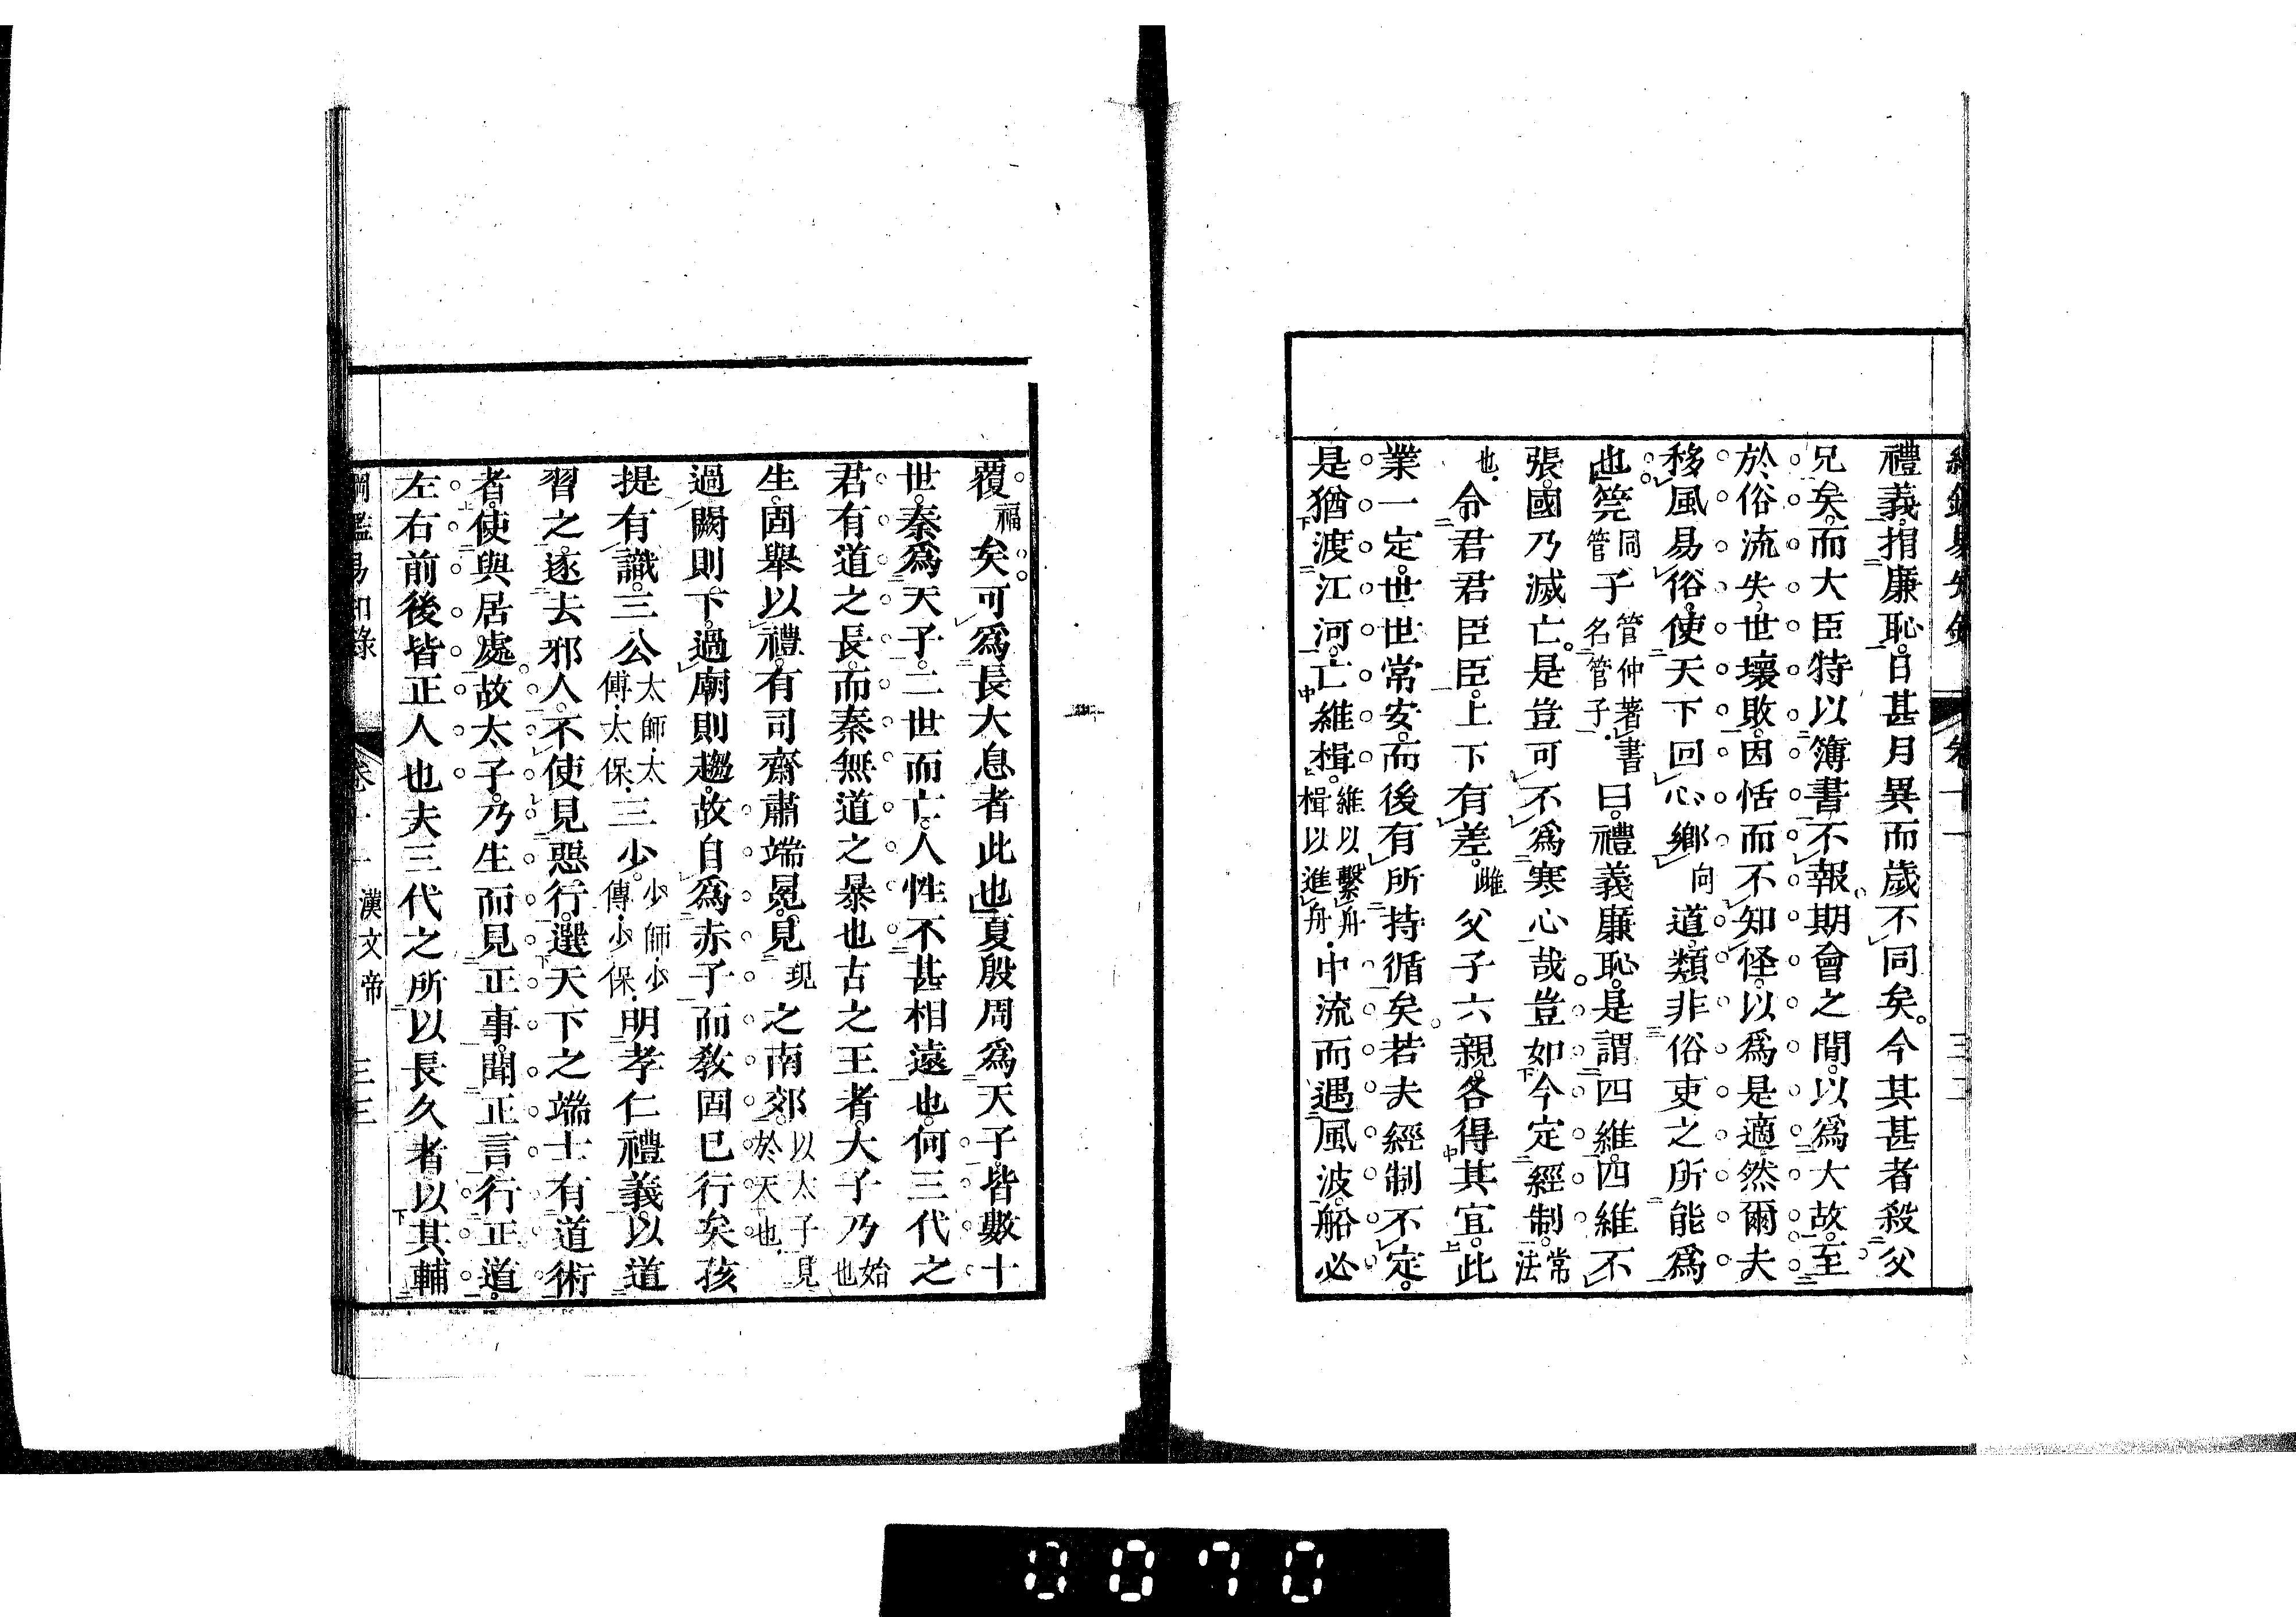 綱鑑易知錄 卷十一 三二
禮義捐廉恥日甚月異而歲不同矣。今其甚者殺父
兄矣。而大臣特以簿書不報期會之間。以爲大故。至
於俗流失。世壞敗。因恬而不知怪。以爲是適然爾夫
移風易俗。使天下回心鄉向道。類非俗吏之所能爲
也筦同管子管仲著書名管子。曰。禮義廉恥。是謂四維。四維不
張。國乃滅亡。是豈可不爲寒心哉。豈如今定經制。常法
也。令君君臣臣。上下有差。雌父子六親。各得其宜。此
業一定。世世常安。而後有所持循矣。若夫經制不定。
是猶渡江河。亡維楫。維以繫舟楫以進舟。中流而遇風波。船必
覆福矣。可爲長大息者此也夏殷周爲天子。皆數十
世。秦爲天子。二世而亡。人性不甚相遠也。何三代之
君有道之長。而秦無道之暴也古之王者。大子乃始也
生。固舉以禮。有司齋肅端冕。見現之南郊。以太子見於天也。
過闕則下。過廟則趨。故自爲赤子而教固已行矣孩
提有識。三公太師·太傅·太保·三少。少師·少傅·少保·明孝仁禮義。以道
習之。逐去邪人。不使見惡行。選天下之端士有道術
者。使與居處。故太子。乃生而見正事。聞正言行正道。
左右前後皆正人也夫三代之所以長久者。以其輔
綱鑑易知錄 卷十一 漢文帝 三三
0070